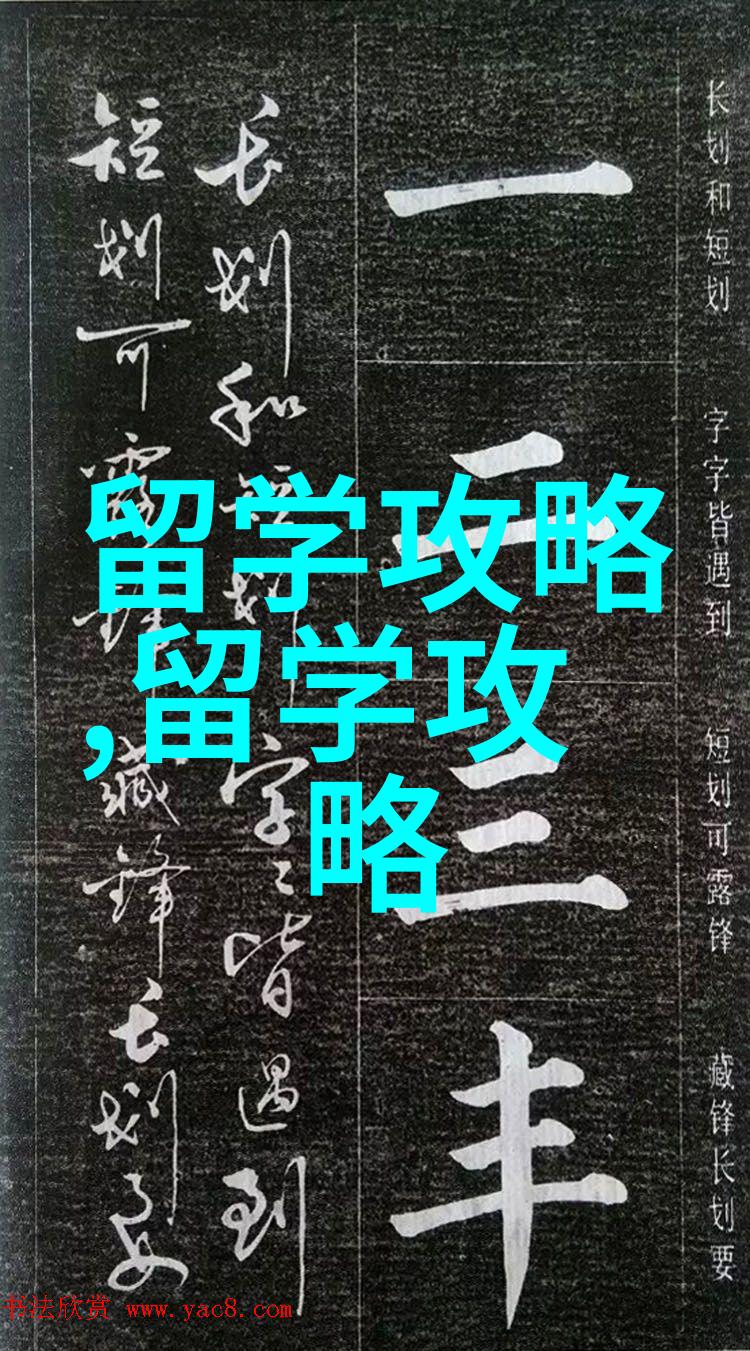 长划和短划 字字皆遇到 短划可露锋 藏锋长划要
一
二
三
丰
长划和短划 字〻皆遇到
短划可露锋 藏锋长划要
留学攻略
,留学攻
略
书法欣赏 www.yac8.com